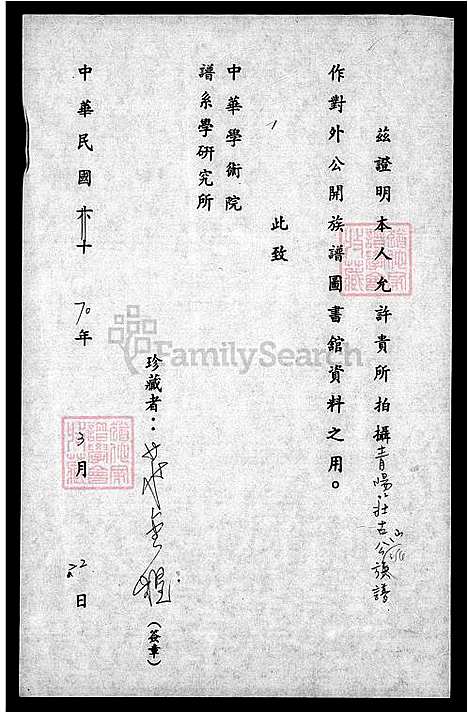 茲證明本人允許貴所拍攝青陽莊古公派族譜
作對外公開族譜圖書館資料之用。
此致
中華學術院
譜系學研究所
珍藏者：莊
(簽章)
中華民國 70年 3月 22日
FamilySearch